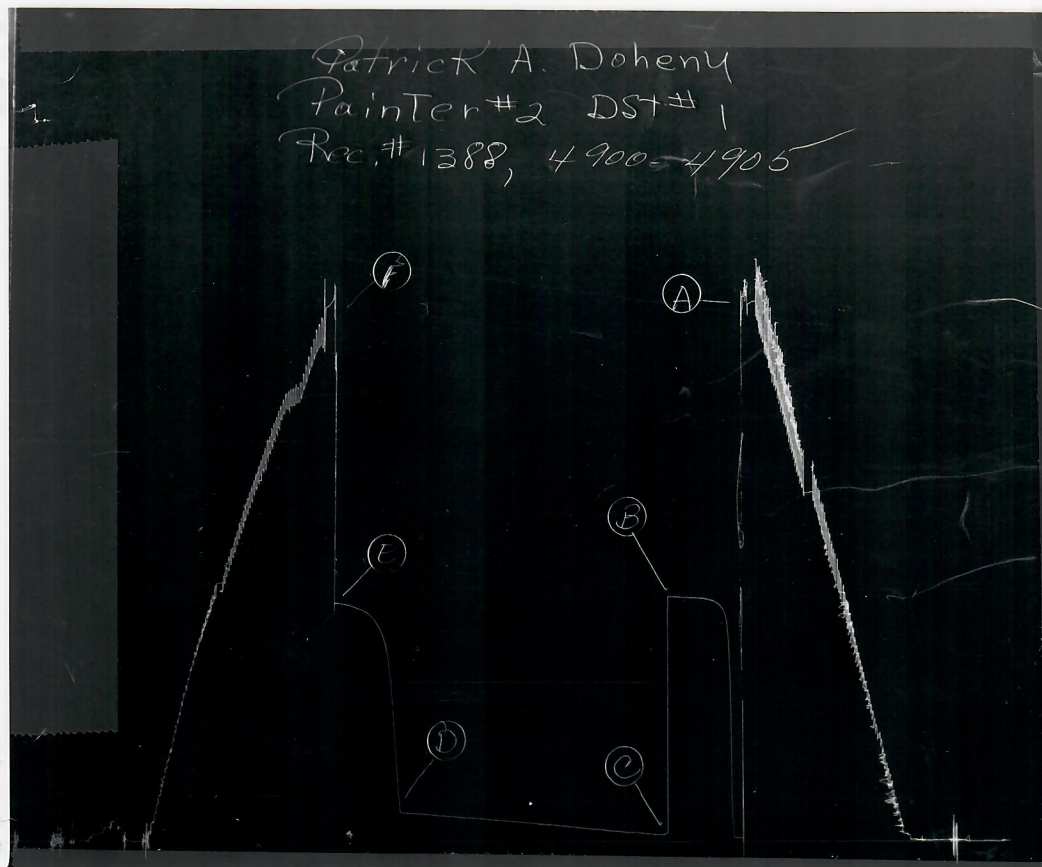 Patrick A. Doheny
Painter #2 DST #1
Rec. #1388, 4900-4905
F
A
B
E
D
C